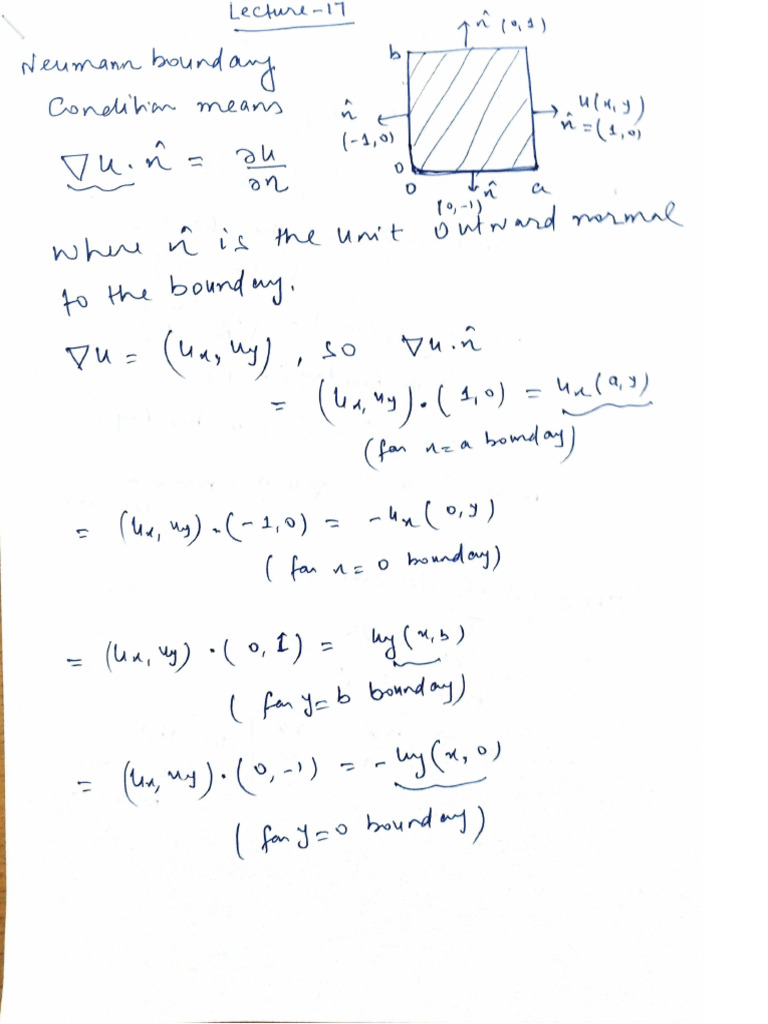 Lecture-17
Neumann boundary
Condition means
∇u · n̂ = ∂u/∂n
b
n̂ (0,1)
n̂
(-1,0)
u(x,y)
n̂ = (1,0)
0
0
n̂
a
(0,-1)
where n̂ is the unit outward normal
to the boundary.
∇u = (ux, uy), so ∇u·n̂
= (ux, uy)·(1,0) = ux(a,y)
(for x=a boundary)
= (ux, uy)·(-1,0) = -ux(0,y)
(for x=0 boundary)
= (ux, uy)·(0,1) = uy(x,b)
(for y=b boundary)
= (ux, uy)·(0,-1) = -uy(x,0)
(for y=0 boundary)